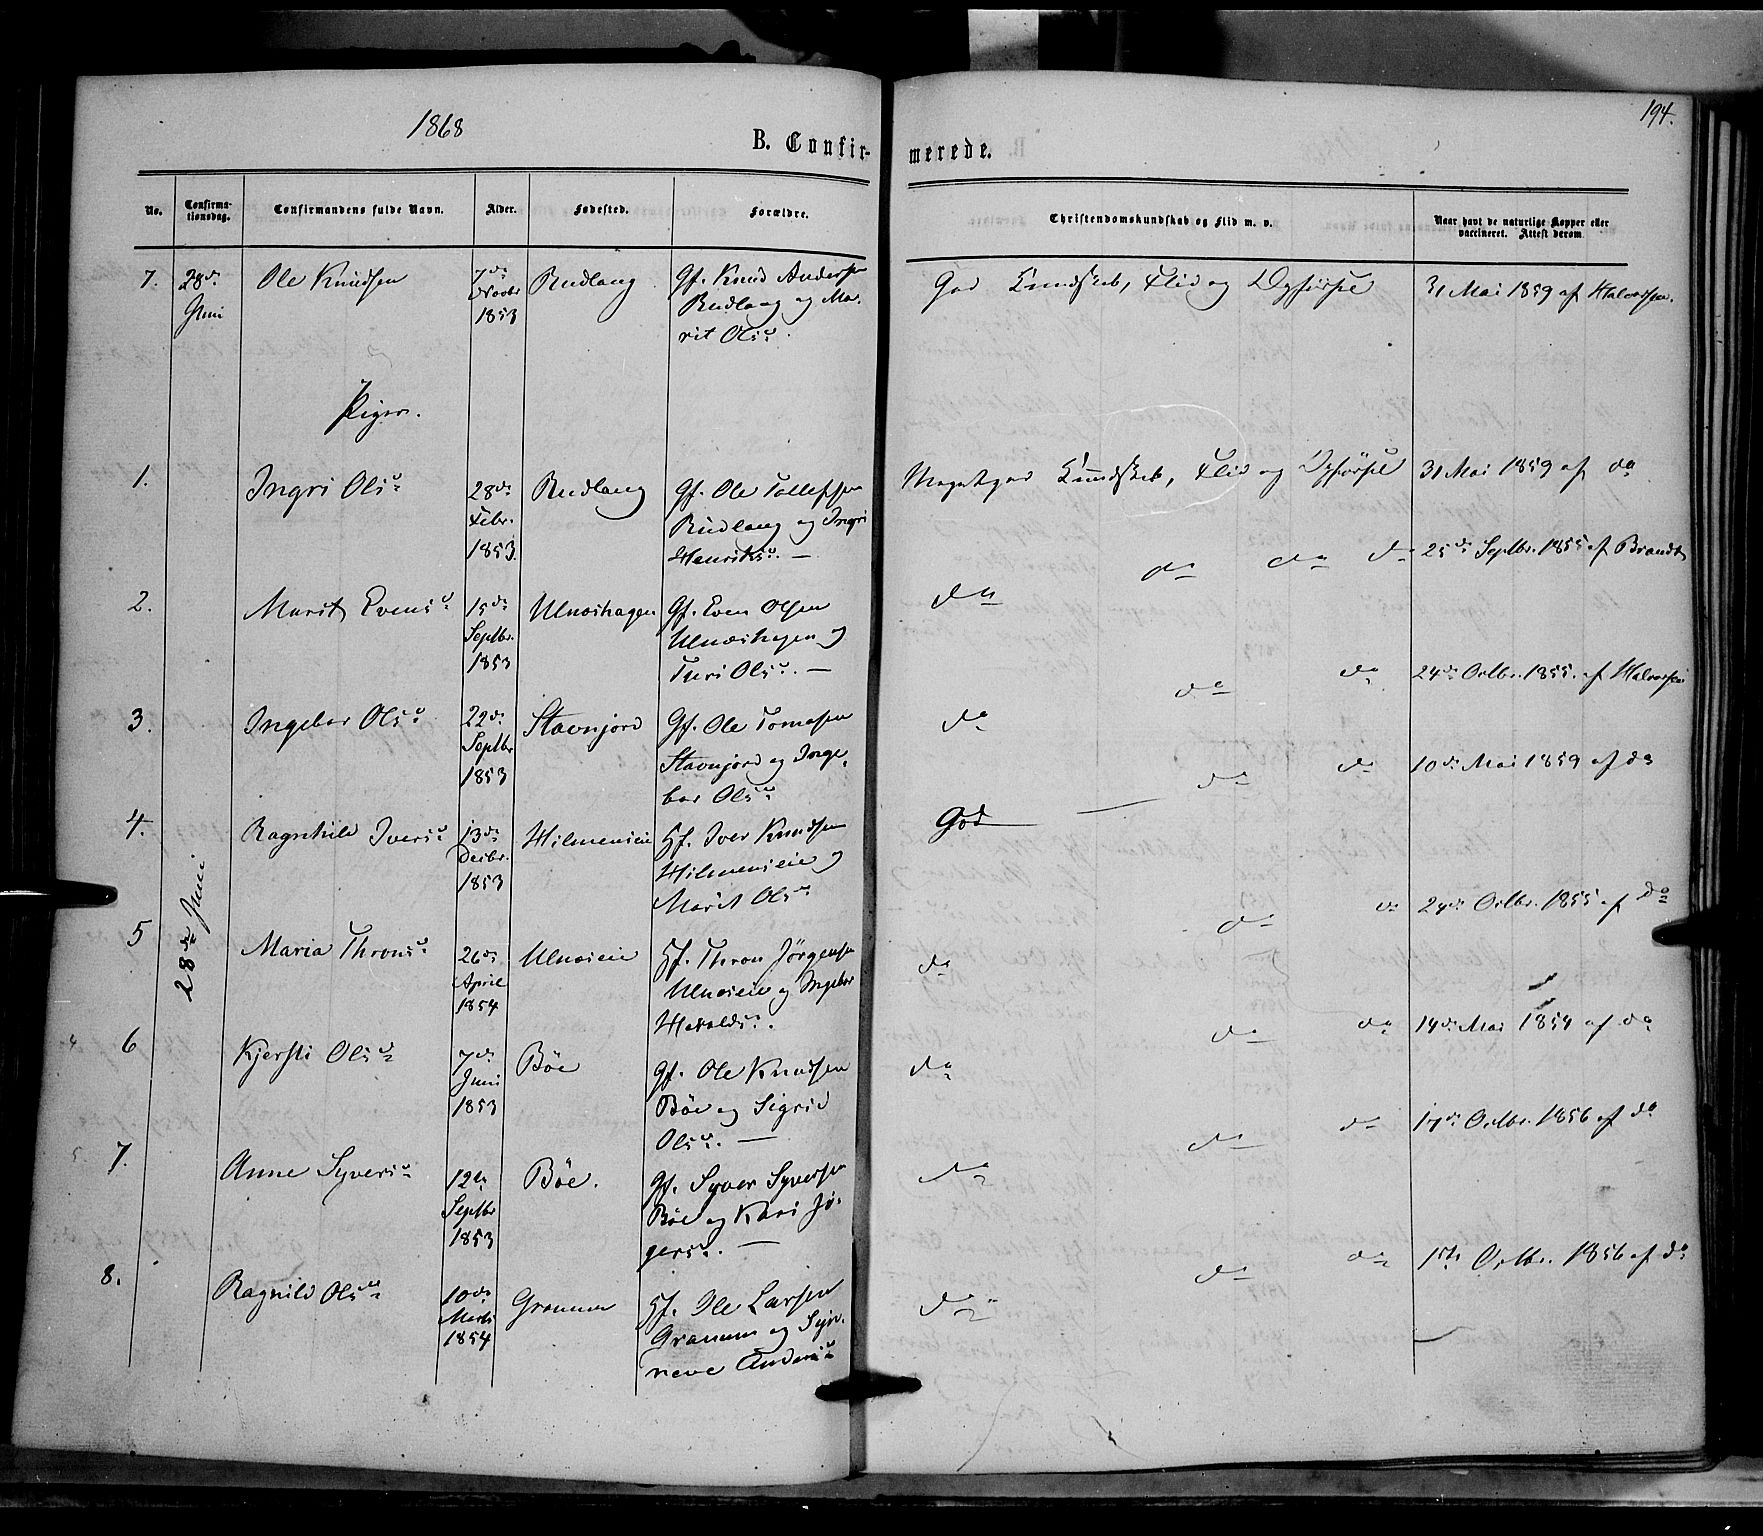 1868
194.
B. Confir-
merede.
No.
Confirma-
tionsdag.
Confirmandens fulde Navn.
Alder.
Fødested.
Forældre.
Christendomskundskab og Flid m. v.
Naar havt de naturlige Kopper eller
vaccineret. Attest derom.
7. 28de Ole Knudsen 7de Rudlang Gf. Knud Andersen God Kundskab, Flid og Opførsel 31 Mai 1859 af Halvorsen.
Juni Novbr Rudlang og Ma-
1853 rit Olsd.
Piger.
1. Ingri Olsd 28de Rudlang Gf. Ole Tollefsen Megetgod Kundskab, Flid og Opførsel 31 Mai 1859 af do
Febr. Rudlang og Ingri
1853. Henriksd. —
2. Marit Evensd 15de Ulnæshagen Gf. Even Olsen do do do do 25de Septbr. 1855 af Brandt
Septbr. Ulnæshagen og
1853 Turi Olsd. —
3. Ingebor Olsd 22de Stavnjord Gf. Ole Tomasen do do do 24de Octbr. 1855. af Halvorsen
Septbr Stavnjord og Inge-
1853 bor Olsd
4. Ragnhild Iversd 13de Hilmeneie Hf. Iver Knudsen God — do do 10de Mai 1859 af do
Decbr. Hilmeneie og
1853 Marit Olsd
28de Juni
5 Maria Thronsd 26de Ulnæseie Hf. Thron Jörgensen do do do 24de Octbr. 1855 af do
April Ulnæseie og Ingebor
1854 Haraldsd.
6 Kjersti Olsd 7de Böe Gf. Ole Knudsen do do do 14de Mai 1854 af do
Juni Böe og Sigrid
1853 Olsd. —
7. Anne Syversd 12te Böe. Gf. Syver Syversen do do do 17de Octbr. 1856 af do
Septbr Böe og Kari Jö-
1853 gersd. —
8. Ragnild Olsd 10de Granum Hf. Ole Larsen do do do 1ste Octbr. 1856 af do
Marts Granum og Syn-
1854 neve Andersd